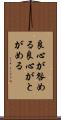 良心が咎め
る良心がと
がめる